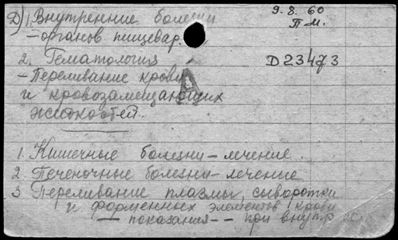 Д) 1. Внутренние болезни
9.8.60
П.М.
- органов пищевар.
2. Гематология
Д23473
- Переливание крови
А
и кровозамещающих
жидкостей.
1. Кишечные болезни – лечение.
2 Печеночные болезни – лечение
3 Переливание плазмы, сыворотки
и форменных элементов крови
– показания – – при внутр.